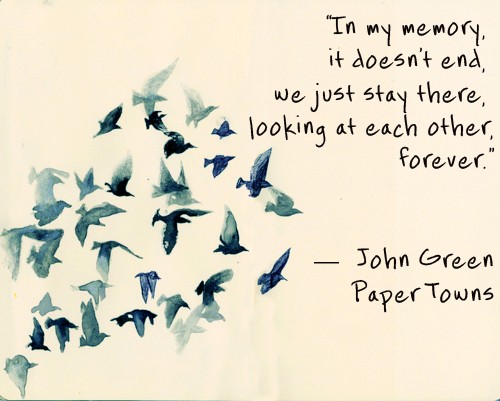 "In my memory,
it doesn't end,
we just stay there,
looking at each other,
forever."
— John Green
Paper Towns